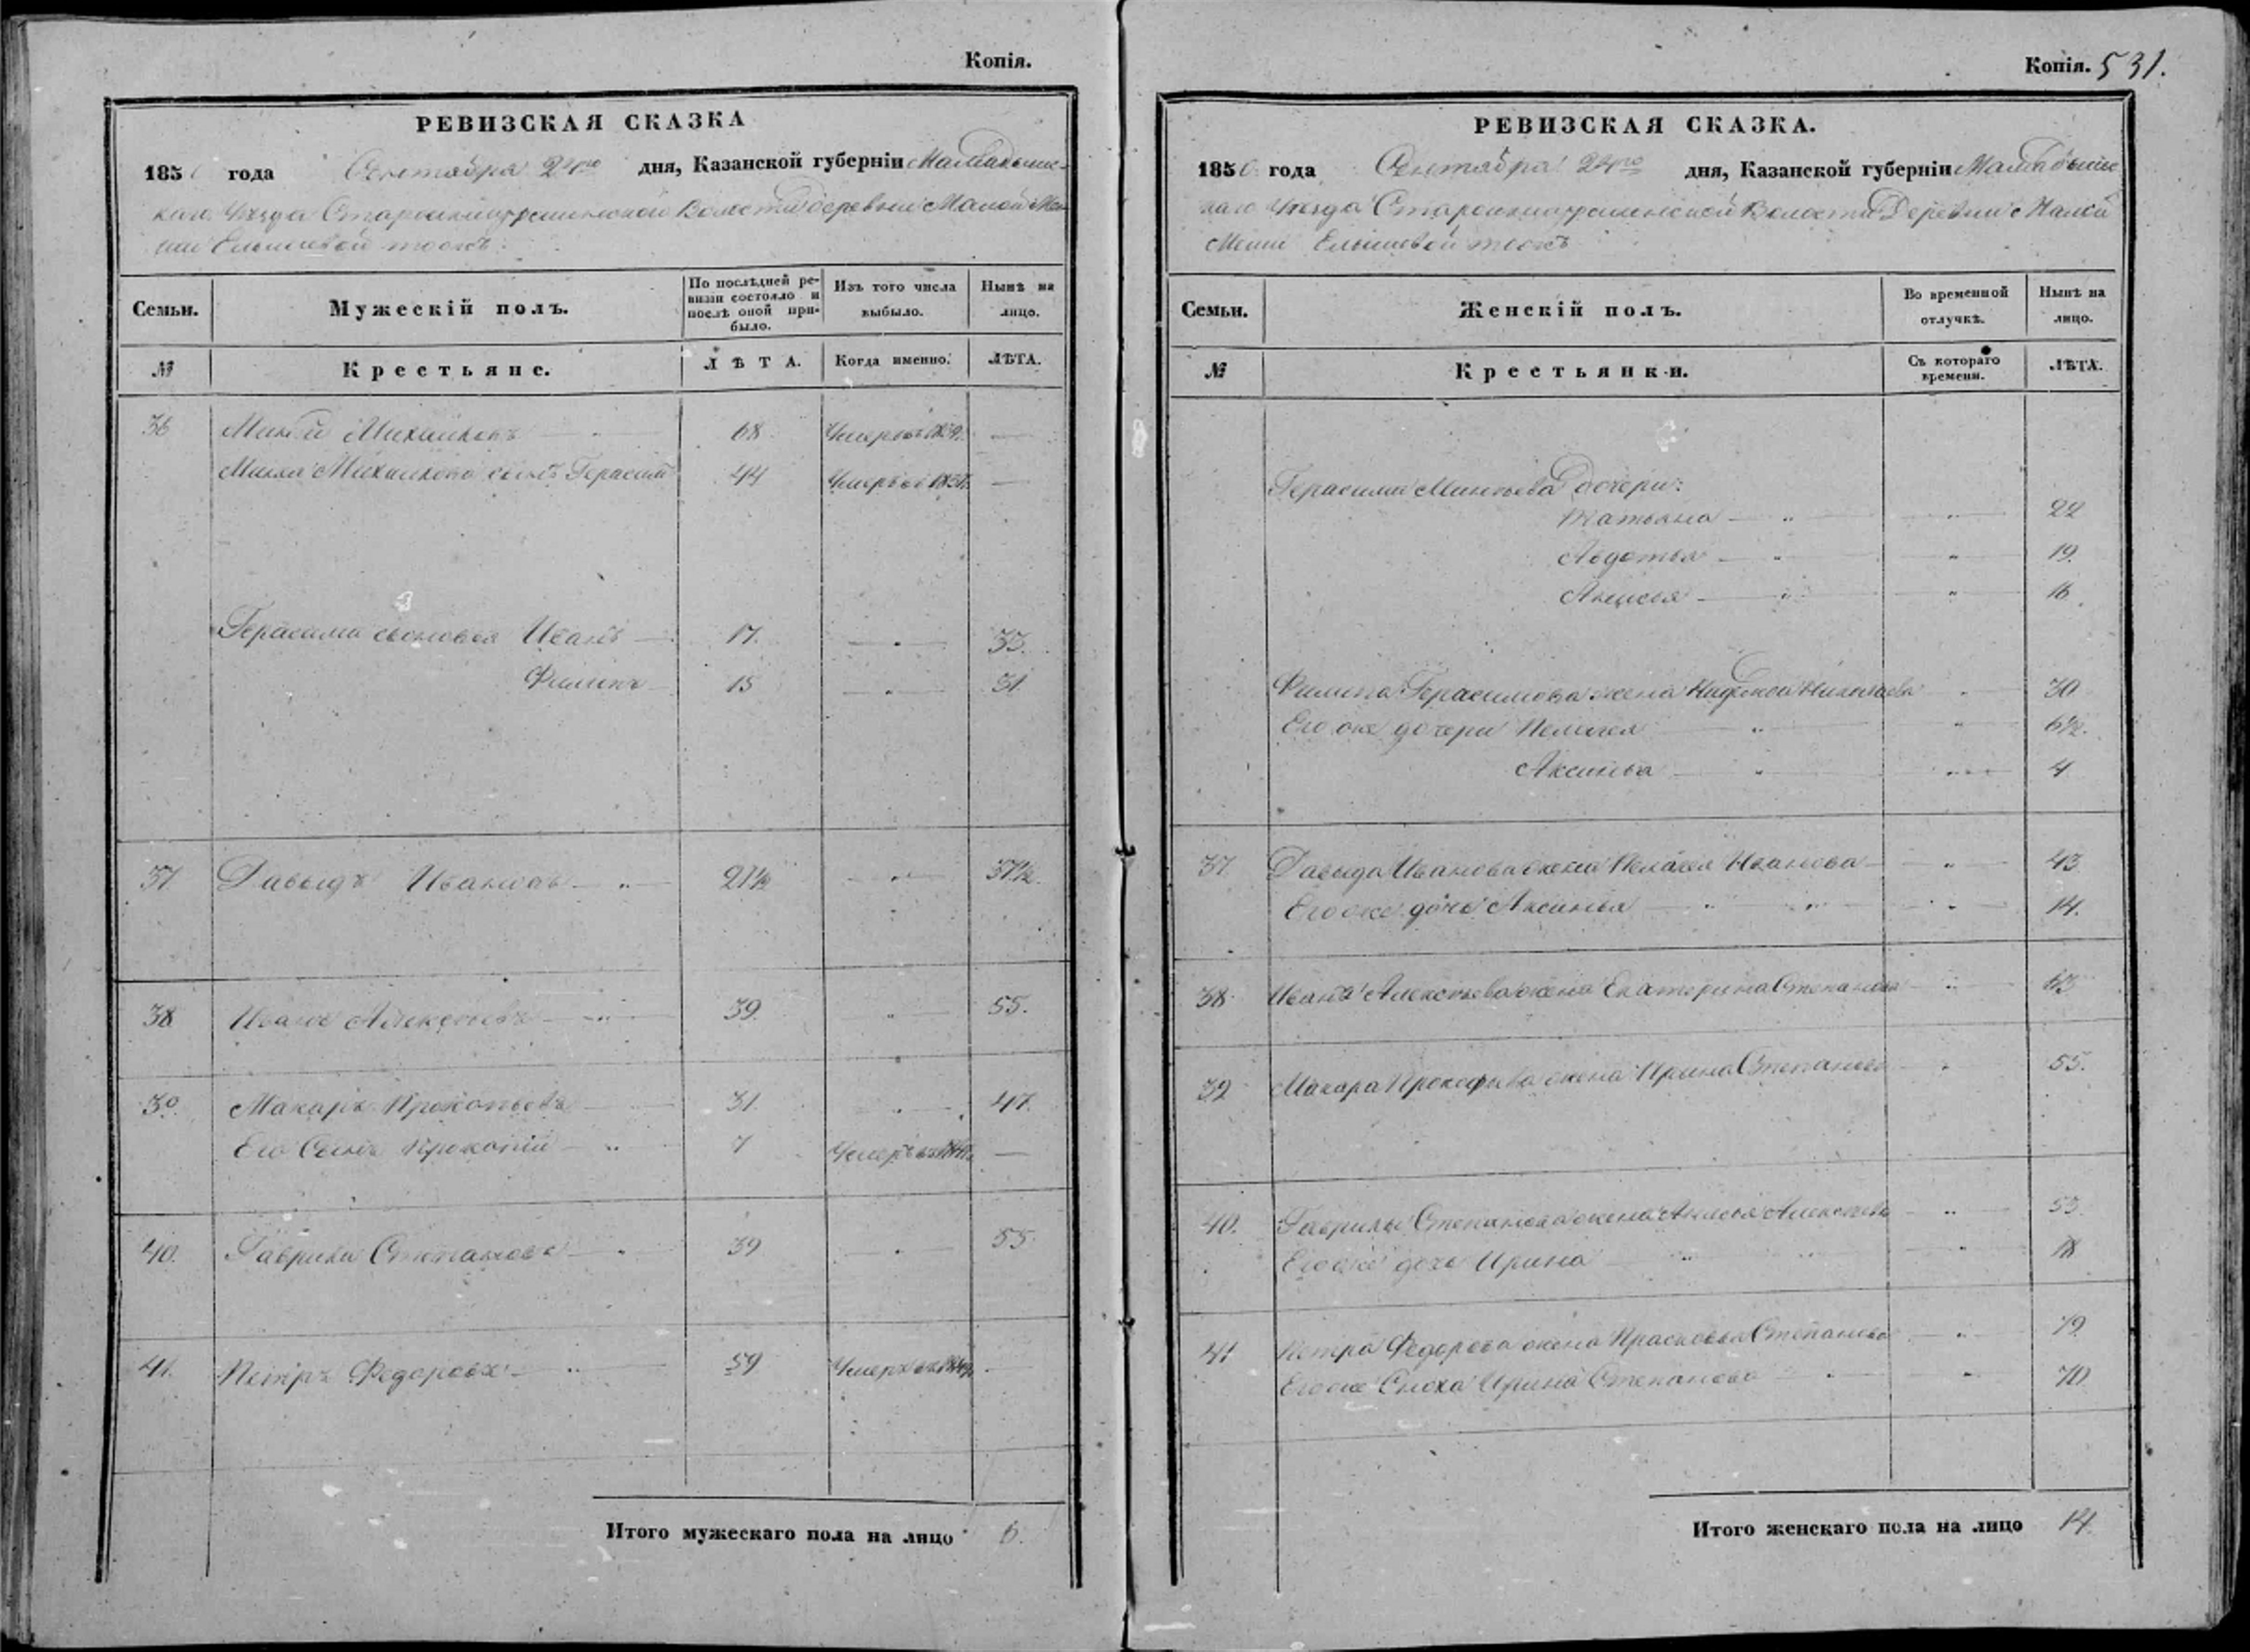 Копія.
РЕВИЗСКАЯ СКАЗКА
185 года Сентября 24го дня, Казанской губерніи Мамадышс-
каго Уѣзда Волости деревни Малой Ме-
ши Елышевой тожъ
Семьи.
Мужескій полъ.
По послѣдней ре-
визіи состояло и
послѣ оной при-
было.
Изъ того числа
выбыло.
Нынѣ на
лицо.
№
Крестьяне.
ЛѢТА.
Когда именно.
ЛѢТА.
36 68 —
сынъ Герасимъ 44 —
Герасима сыновья Иванъ 17. — 33.
Филипъ 15 — 31
37 Давыдъ Ивановъ 21½ — 37½.
38 Иванъ Алексѣевъ 39. 55.
Макаръ Прокопьевъ 31. 47.
Его Сынъ Прокопій 7 —
40. Гаврила Степановъ 39 55.
41. Петръ Федоровъ 59 —
Итого мужескаго пола на лицо 6.
Копія. 531.
РЕВИЗСКАЯ СКАЗКА.
185 года Сентября 24го дня, Казанской губерніи Мамадышс
каго Уѣзда Волости Деревни Малой
Меши Елышевой тожъ
Семьи.
Женскій полъ.
Во временной
отлучкѣ.
Нынѣ на
лицо.
№
Крестьянки.
Съ котораго
времени.
ЛѢТА.
Герасима дочери:
Татьяна 22
Авдотья 19.
16.
Филипа Герасимова жена Николаева 30
Его же дочери Пелагея 6½.
Аксинья 4
37. Давыда Иванова жена Пелагея Иванова 43
Его же дочь Аксинья 14.
38. Ивана Алексѣева жена Екатерина Степанова
39 Макара Прокофьева жена Ирина Степанова 55.
40. Гаврилы Степанова жена Алексѣева 53.
Его же дочь Ирина 18
41 Петра Федорова жена Прасковья Степанова 79.
Его же Сноха Ирина Степанова 70
Итого женскаго пола на лицо 14.